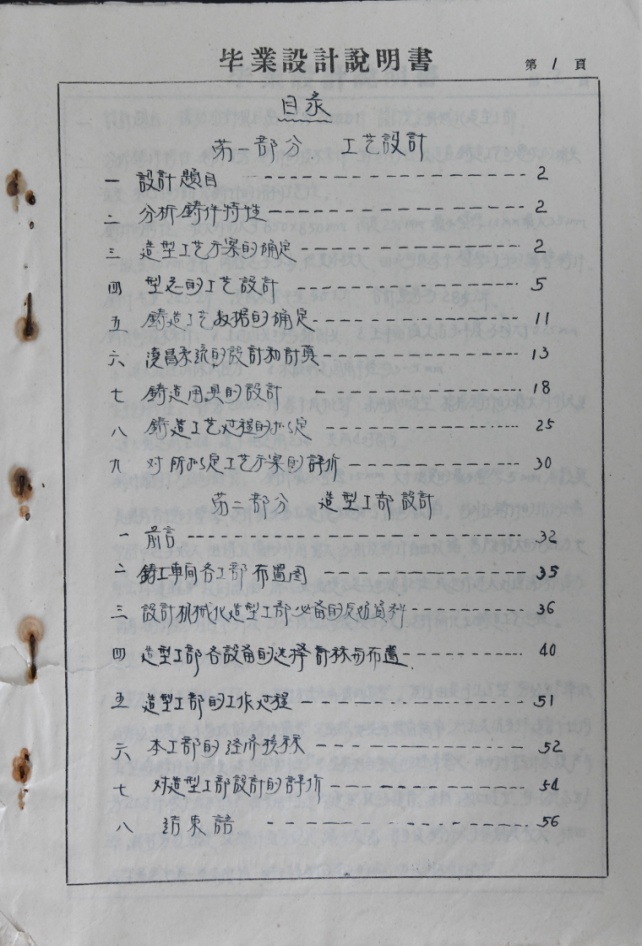 毕業設計說明書 第 1 頁
目录
第一部分 工艺設計
一 設計題目 2
二 分析鋳件特性 2
三 造型工艺方案的确定 2
四 型芯的工艺設計 5
五 鋳造工艺数据的确定 11
六 澆冒系統的設計和計算 13
七 鋳造用具的設計 18
八 鋳造工艺过程的拟定 25
九 对所拟定工艺方案的評价 30
第二部分 造型工部設計
一 前言 32
二 鋳工車间各工部布置图 35
三 設計机械化造型工部必备的原始資料 36
四 造型工部各設备的选择計算与布置 40
五 造型工部的工作过程 51
六 本工部的经济技術 52
七 对造型工部設計的評价 54
八 結束語 56